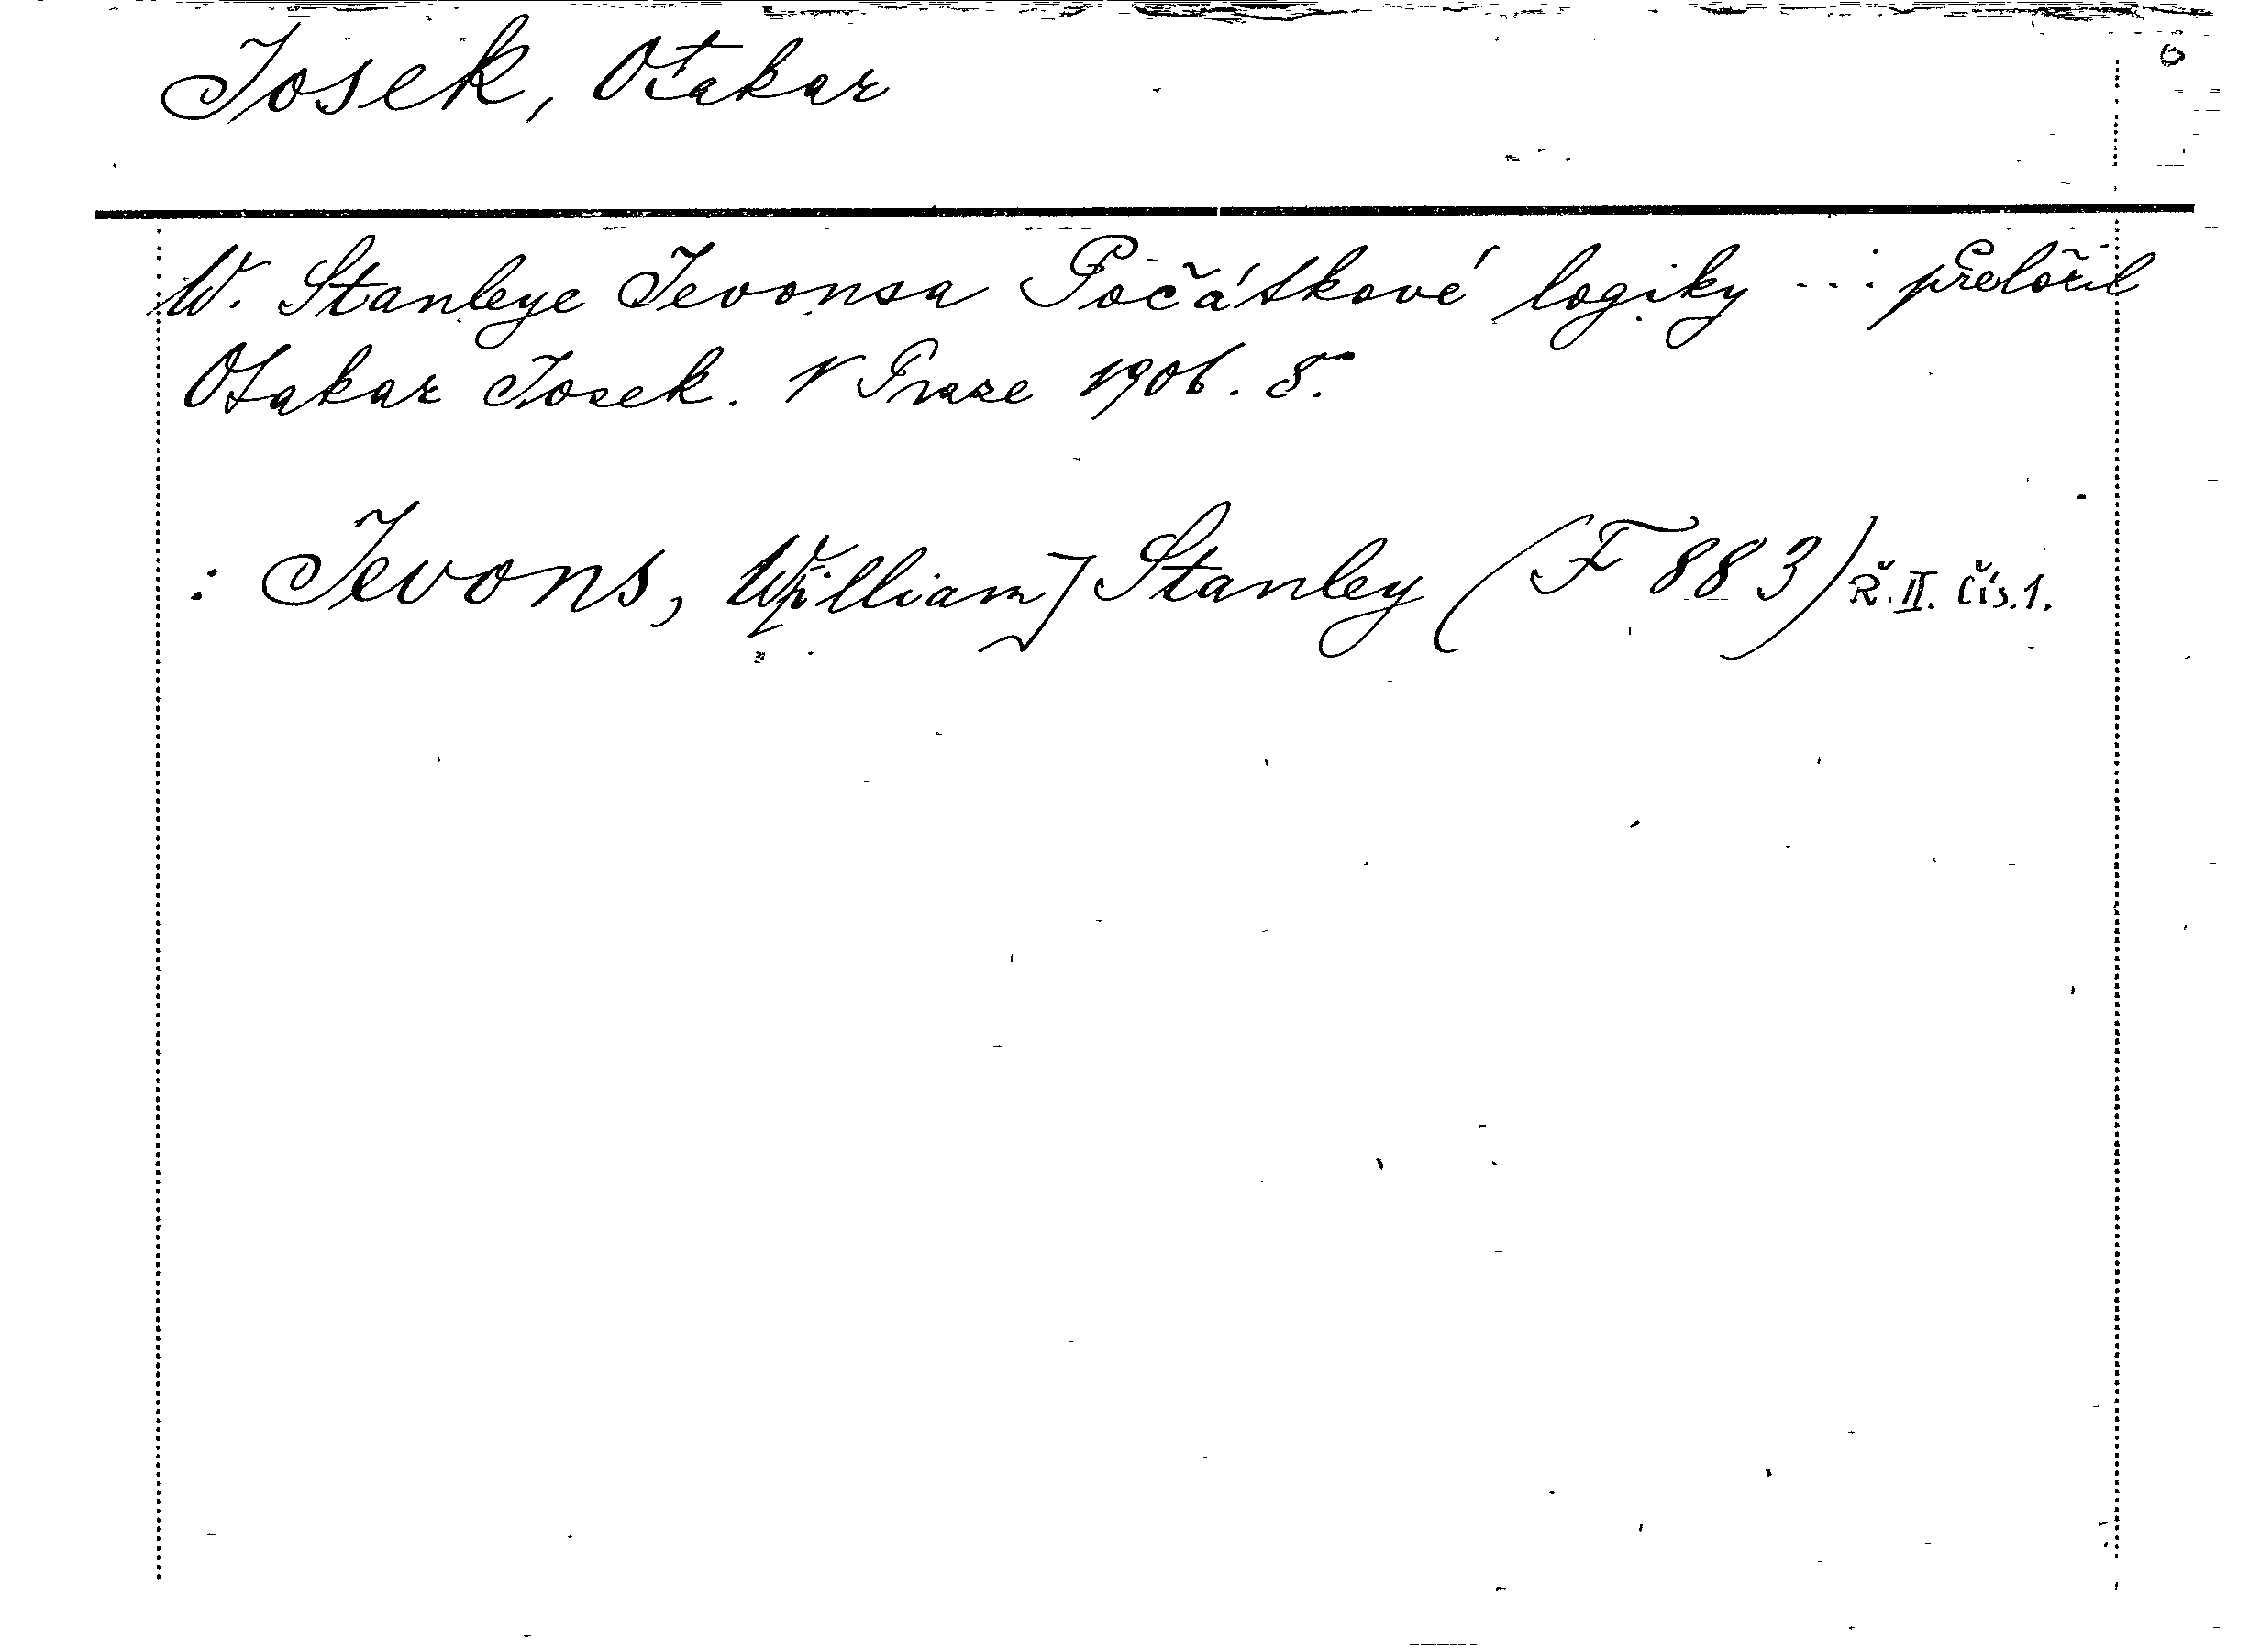 Josek, Otakar
W. Stanleye Jevonsa Počátkové logiky ... přeložil
Otakar Josek. V Praze 1906. 8.
: Jevons, W[illiam] Stanley (F 883) Ř. II. čís. 1.